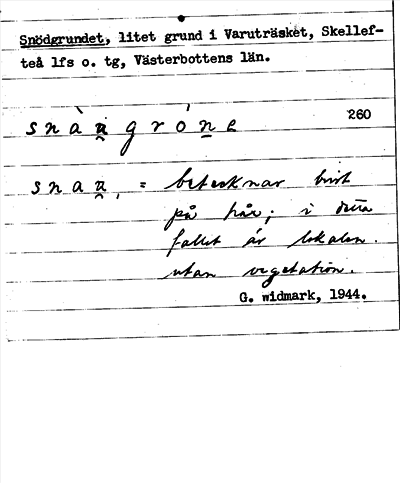 Snödgrundet, litet grund i Varuträsket, Skellef-
teå lfs o. tg, Västerbottens län.
260
snàu̯ gróne
snau̯, = betecknar brist
på hår; i detta
fallet är lokalen
utan vegetation.
G. Widmark, 1944.